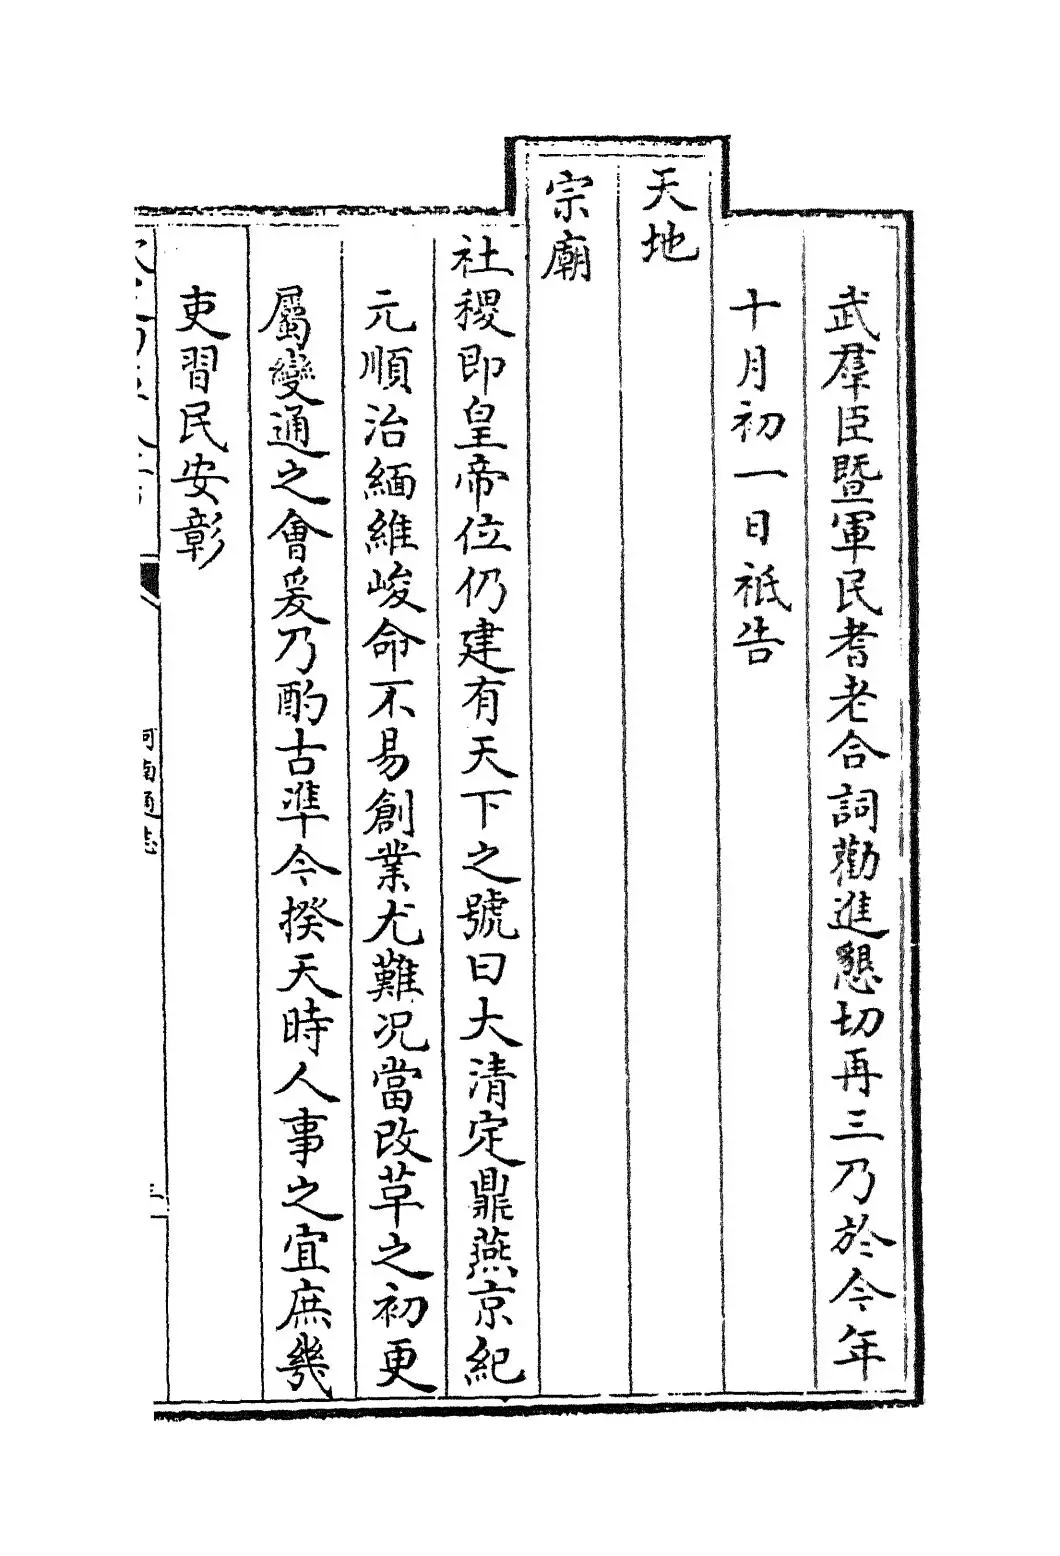 武羣臣暨軍民耆老合詞勸進懇切再三乃於今年
十月初一日祗告
天地
宗廟
社稷即皇帝位仍建有天下之號曰大清定鼎燕京紀
元順治緬維峻命不易創業尤難况當改革之初更
屬變通之會爰乃酌古準今揆天時人事之宜庶幾
吏習民安彰
河南通志